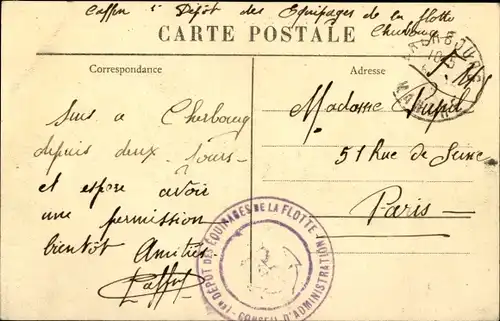 Caffin 1er Dépôt des Equipages de la flotte
Cherbourg
CARTE POSTALE
Correspondance
Adresse
CHERBOURG
F. M.
Suis a Cherbourg
depuis deux Jours
et espere avoir
une permission
bientot Amitiés
Madame
51 Rue de Seine
Paris
1er DEPOT DES EQUIPAGES DE LA FLOTTE
CONSEIL D'ADMINISTRATION